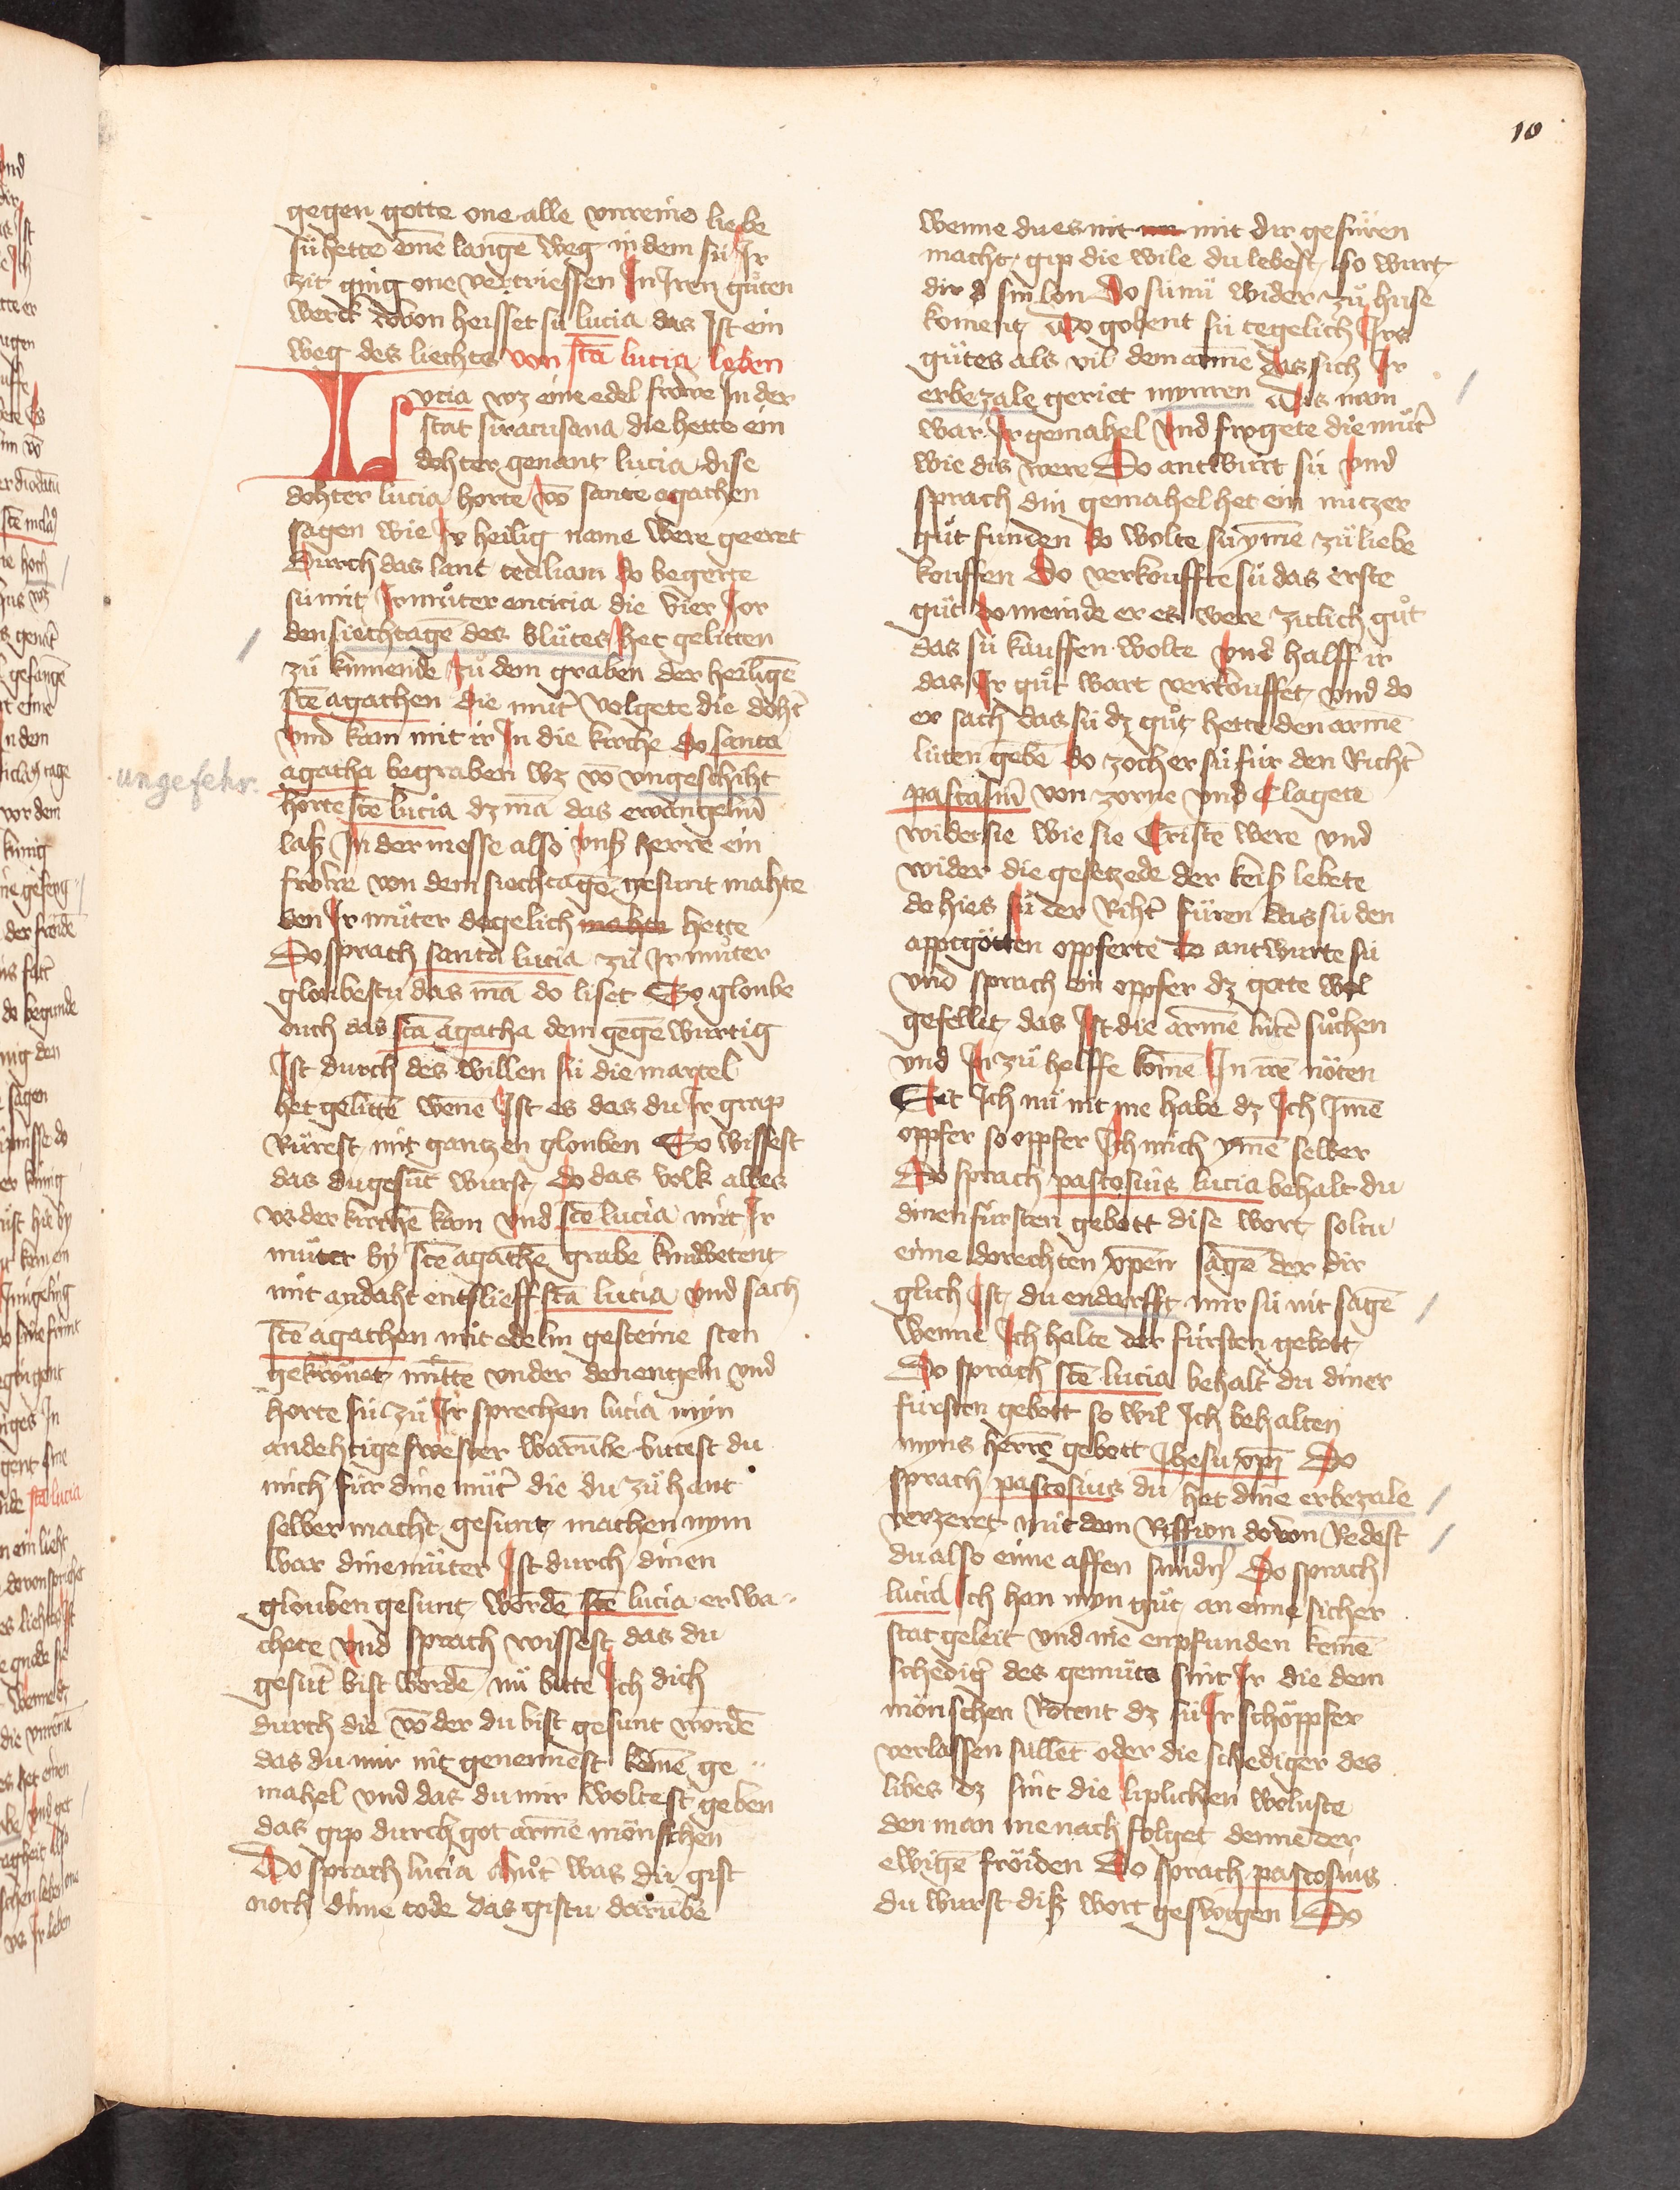 10
gegen gotte one alle vnreine liebe
sü hette eine langē weg in dem sü Ir
zit ging one vertriessen In Iren gůten
werck dovon heisset sü lucia das Ist ein
weg des liechts von stā lucia leben
Lucia wz eine edel frowe In der
stat siracusana die hette ein
dohter genant lucia dise
dohter lucia horte vō sante agathen
sagen wie Ir heilig name were geeret
Durch das lant ceciliam do begerte
sü mit Ir můter enticia die vier Jor
den siechtagē des blůtes het gelitten
zů kummende zů dem graben der heiligē
stē agathen die můt̄ volgete die doht̄
vnd kam mit ir In die kirche do santa
agatha begraben wz vō vngeschiht
ungefehr.
horte stē lucia dz mā das ewangeliū
laß In der messe also vnß herre ein
frowe von dem siechtagē gesunt mahte
den Ir můter degelich mahte hette
Do sprach santa lucia zů Ir můter
gloubestu das mā do liset So gloube
ouch das stā agatha dem gegē wurtig
Ist durch des willen sü die martel
het gelittē wenē Ist es das du Ir grap
Rürest mit gantzen glouben So wissest
das du gesūt wurst do das volk alles
vs der kirchē kam vnd stē lucia mit Ir
můter by stē agathē grabe knuwetent
mit andaht entslieff stā lucia vnd sach
stē agathen mit edelm gesteine sten
gekrönet mittē vnder den engeln vnd
horte sü zů Ir sprechen lucia myn
andehtige swester warūbe bittest du
mich für dine můt̄ die du zů hant
selber macht gesunt machen nym
war dine můter Ist durch dinen
glouben gesunt wordē stē lucia erwa
chete vnd sprach wissest das du
gesūt bist wordē nů bitte Ich dich
durch die vō der du bist gesunt wordē
das du mir nit genennest keinē ge
mahel vnd das du mir woltest geben
das gip durch got armē mönschen
Do sprach lucia můt̄ was du gist
noch dime tode das gistu darūbe
wenne du es nit mit dir gefüren
macht gip die wile du lebest so wurt
dir d sin lon Do sü nü wider zů huse
koment Do gobent sü tegelich Irs
gůtes als vil dem armē das sich Ir
erbezale geriet mynren Dis nam
war Ir gemahel vnd frogete die můt̄
wie dis were Do antwurt sü vnd
sprach din gemahel het ein nutzer
gůt funden do wolte sü ymē zů liebe
kouffen Do verkouffte sü das erste
gůt do meinde er es were zitlich gůt
das sü kauffen wolte vnd halff ir
das Ir gůt wart verkouffet vnd do
er sach das sü dz gůt hette den armē
lüten gebē do zoch er sü für den Richt̄
pastasiū von zorne vnd Clagete
wider sie wie sie Cristē were vnd
wider die gesetzede der keiß lebete
do hies sü der Riht̄ füren das sü den
apptgötten oppferte do antwurte sü
vnd sprach ein oppfer dz gotte wol
gefellet das Ist die armē lütē sůchen
vnd In zů helffe komē In irē nöten
Sit Ich nü nit me habe dz Ich Imē
oppfer so oppfer Ich mich ymē selber
Do sprach pastosius lucia behalt du
dinen fürsten gebott dise wort soltu
eime dorechten xpen sagē der dir
glich Ist du endarfft mir sü nit sagē
wenne Ich halte der fürsten gebott
Do sprach stē lucia behalt du diner
fürsten gebott so wil Ich behalten
myns herrē gebott Jhesu xpi Do
sprach pastosius du het dine erbezale
verzeret mit dem Riffion dovon Redest
du also eime affen
Do sprach
lucia Ich han myn gůt an eine sicher
stat geleit vnd nie enpfunden keinē
schediḡ des gemütes sint Ir die dem
mönschen Rotent dz sü Ir schöppfer
verlassen süllēt oder die schediger des
libes dz sint die liplichen woluste
den man me nach folget denne der
ewigē fröiden Do sprach pastosius
du wurst diß wort geswigen Do